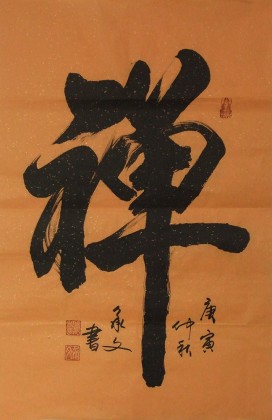 禅
庚寅
仲秋
承文
書